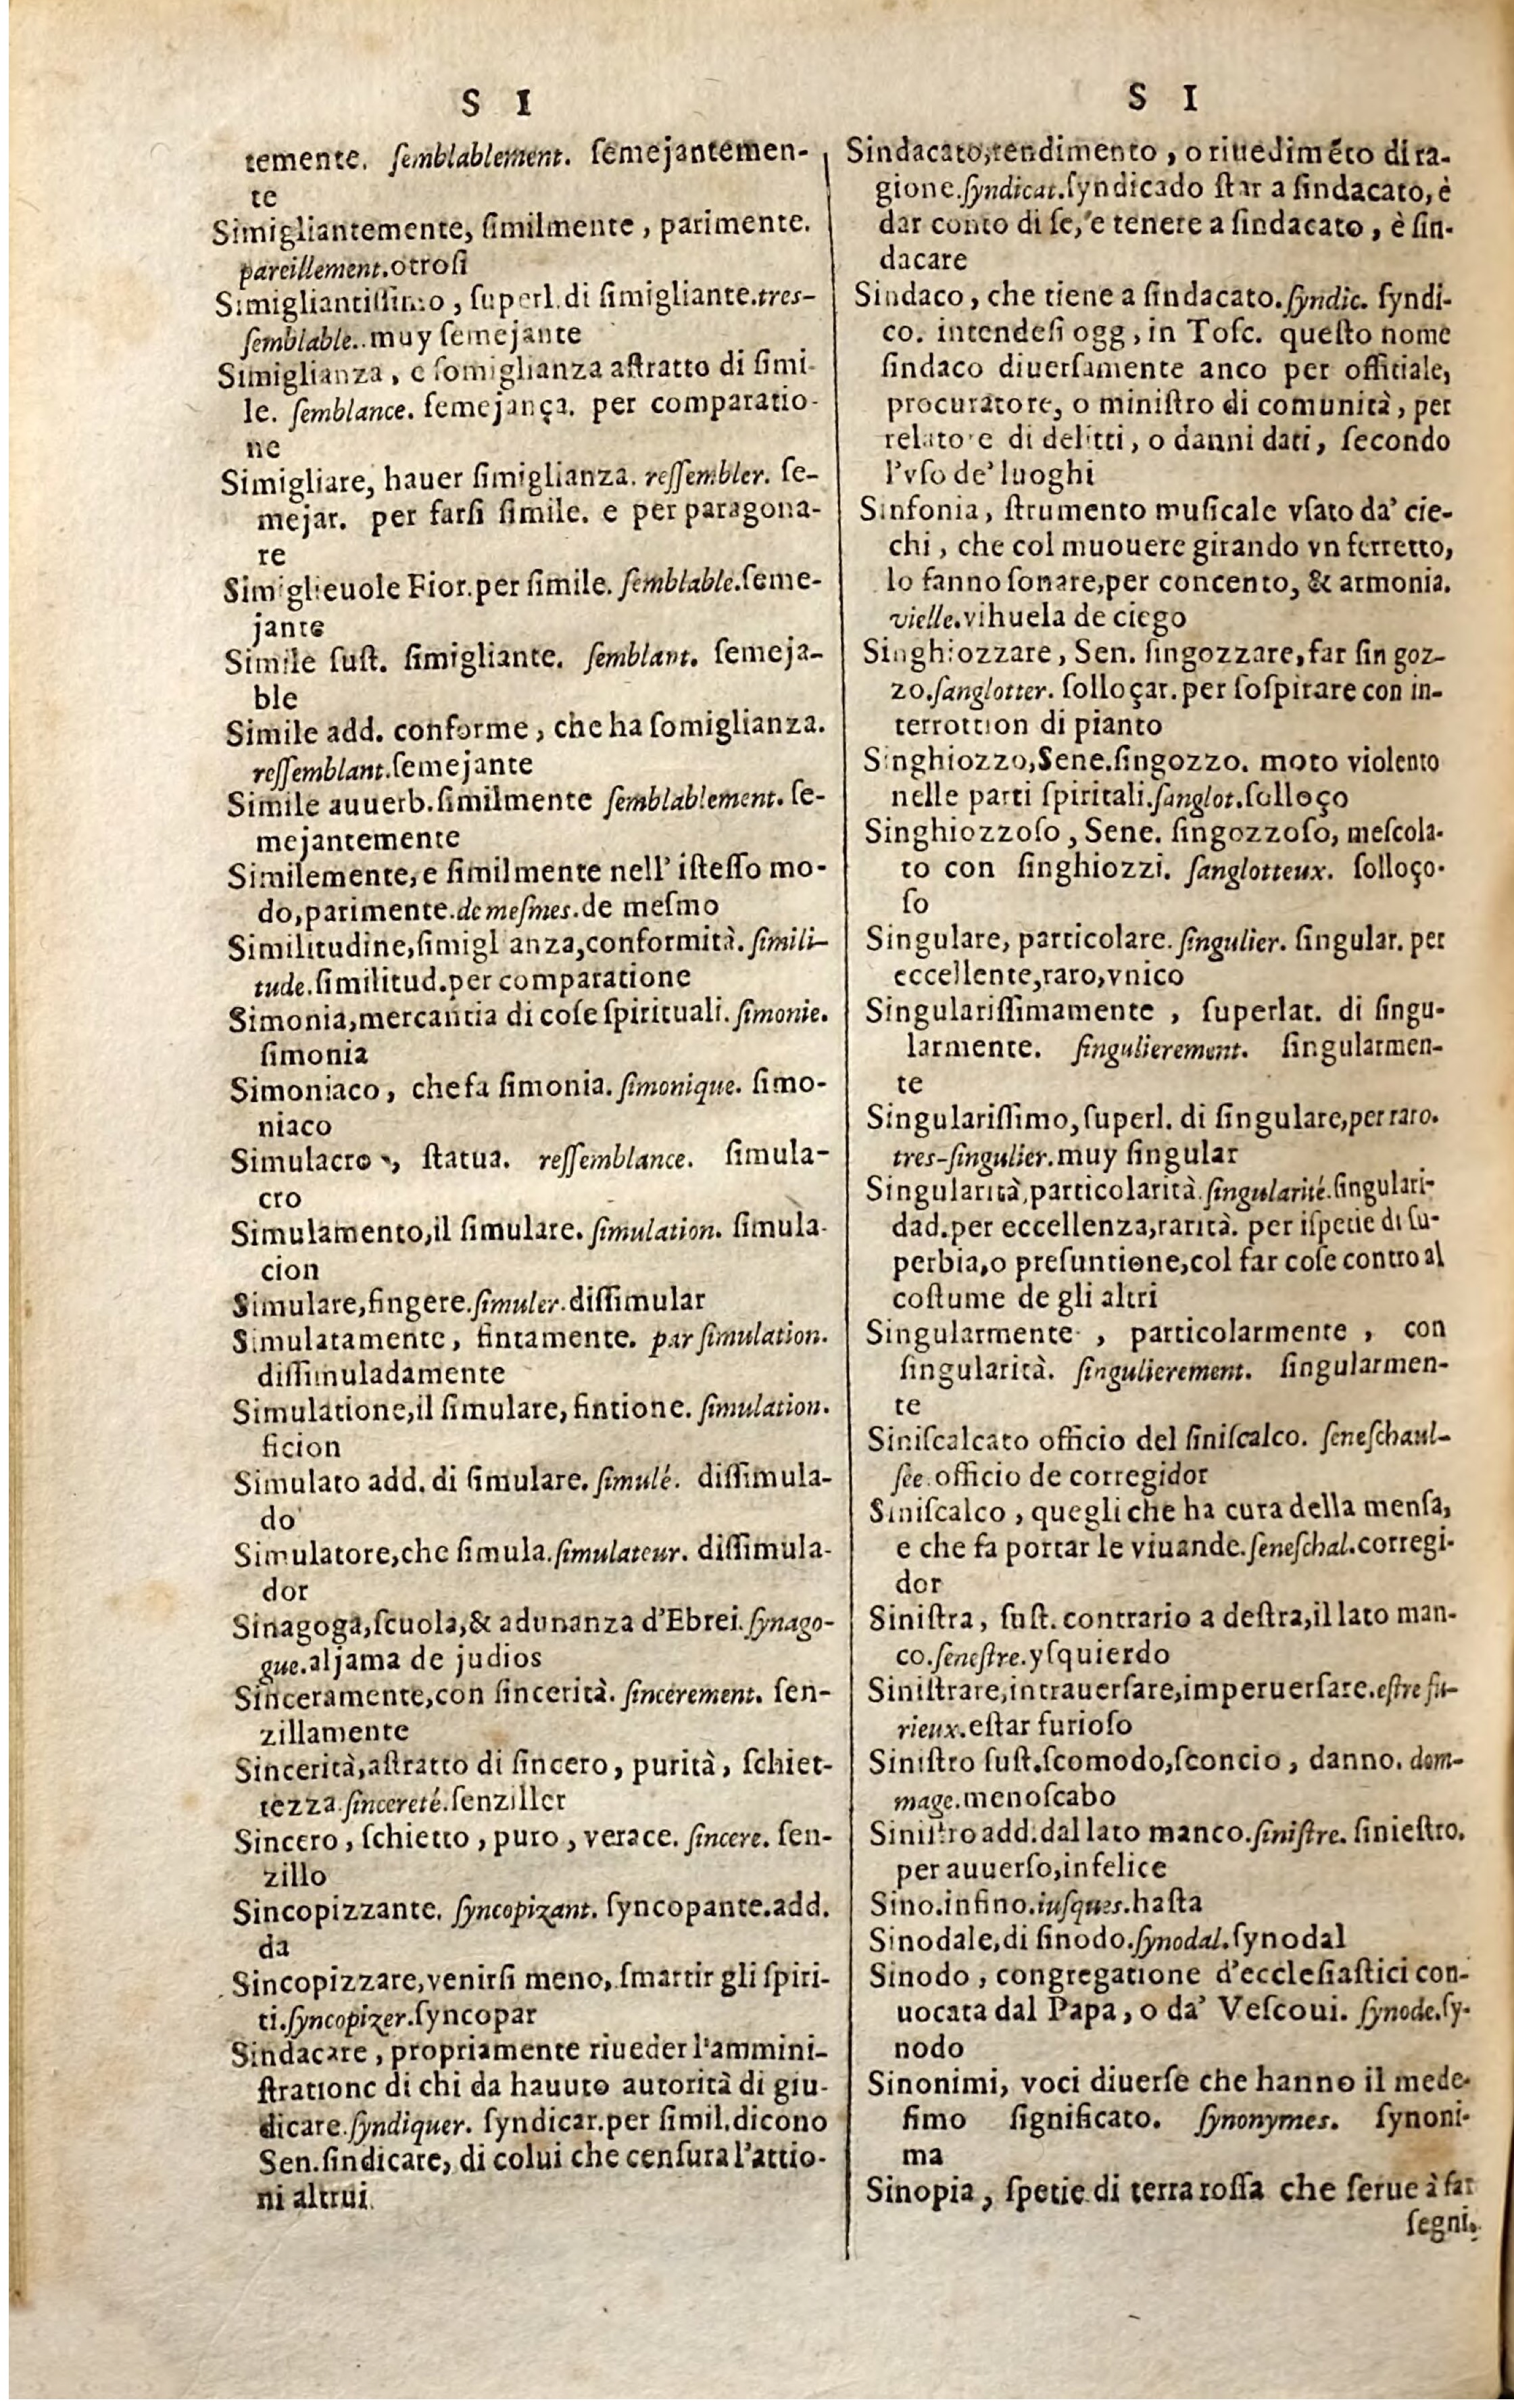 S I
temente. ſemblablement. ſemejantemen-
te
Simigliantemente, ſimilmente, parimente.
pareillement. otroſi
Simigliantiſſimo, ſuperl. di ſimigliante. tres-
ſemblable.. muy ſemejante
Simiglianza, e ſomiglianza aſtratto di ſimi-
le. ſemblance. ſemejança. per comparatio-
ne
Simigliare, hauer ſimiglianza. reſſembler. ſe-
mejar. per farſi ſimile. e per paragona-
re
Simiglieuole Fior. per ſimile. ſemblable. ſeme-
jante
Simile ſuſt. ſimigliante. ſemblant. ſemeja-
ble
Simile add. conforme, che ha ſomiglianza.
reſſemblant. ſemejante
Simile auuerb. ſimilmente ſemblablement. ſe-
mejantemente
Similemente, e ſimilmente nell' iſteſſo mo-
do, parimente. de meſmes. de meſmo
Similitudine, ſimiglianza, conformità. ſimili-
tude. ſimilitud. per comparatione
Simonia, mercantia di coſe ſpirituali. ſimonie.
ſimonia
Simoniaco, che fa ſimonia. ſimonique. ſimo-
niaco
Simulacro, ſtatua. reſſemblance. ſimula-
cro
Simulamento, il ſimulare. ſimulation. ſimula-
cion
Simulare, fingere. ſimuler. diſſimular
Simulatamente, fintamente. par ſimulation.
diſſimuladamente
Simulatione, il ſimulare, fintione. ſimulation.
ficion
Simulato add. di ſimulare. ſimulé. diſſimula-
do
Simulatore, che ſimula. ſimulateur. diſſimula-
dor
Sinagoga, ſcuola, & adunanza d'Ebrei. ſynago-
gue. aljama de judios
Sinceramente, con ſincerità. ſincerement. ſen-
zillamente
Sincerità, aſtratto di ſincero, purità, ſchiet-
tezza. ſincereté. ſenziller
Sincero, ſchietto, puro, verace. ſincere. ſen-
zillo
Sincopizzante. ſyncopizant. ſyncopante. add.
da
Sincopizzare, venirſi meno, ſmarrir gli ſpiri-
ti. ſyncopizer. ſyncopar
Sindacare, propriamente riueder l'ammini-
ſtratione di chi da hauuto autorità di giu-
dicare. ſyndiquer. ſyndicar. per ſimil. dicono
Sen. ſindicare, di colui che cenſura l'attio-
ni altrui.
S I
Sindacato, rendimento, o riuedimẽto di ra-
gione. ſyndicat. ſyndicado ſtar a ſindacato, è
dar conto di ſe, e tenere a ſindacato, è ſin-
dacare
Sindaco, che tiene a ſindacato. ſyndic. ſyndi-
co. intendeſi ogg, in Toſc. queſto nome
ſindaco diuerſamente anco per offitiale,
procuratore, o miniſtro di comunità, per
relatore di delitti, o danni dati, ſecondo
l'vſo de' luoghi
Sinfonia, ſtrumento muſicale vſato da' cie-
chi, che col muouere girando vn ferretto,
lo fanno ſonare, per concento, & armonia.
vielle. vihuela de ciego
Singhiozzare, Sen. ſingozzare, far ſin goz-
zo. ſanglotter. ſolloçar. per ſoſpirare con in-
terrottion di pianto
Singhiozzo, Sene. ſingozzo. moto violento
nelle parti ſpiritali. ſanglot. ſolloço
Singhiozzoſo, Sene. ſingozzoſo, meſcola-
to con ſinghiozzi. ſanglotteux. ſolloço-
ſo
Singulare, particolare. ſingulier. ſingular. per
eccellente, raro, vnico
Singulariſſimamente, ſuperlat. di ſingu-
larmente. ſingulierement. ſingularmen-
te
Singulariſſimo, ſuperl. di ſingulare, per raro.
tres-ſingulier. muy ſingular
Singularità, particolarità. ſingularité. ſingulari-
dad. per eccellenza, rarità. per iſpetie di ſu-
perbia, o preſuntione, col far coſe contro al
coſtume de gli altri
Singularmente, particolarmente, con
ſingularità. ſingulierement. ſingularmen-
te
Siniſcalcato officio del ſiniſcalco. ſeneſchaul-
ſée. officio de corregidor
Siniſcalco, quegli che ha cura della menſa,
e che fa portar le viuande. ſeneſchal. corregi-
dor
Siniſtra, ſuſt. contrario a deſtra, il lato man-
co. ſeneſtre. yſquierdo
Siniſtrare, intrauerſare, imperuerſare. eſtre fu-
rieux. eſtar furioſo
Siniſtro ſuſt. ſcomodo, ſconcio, danno. dom-
mage. menoſcabo
Siniſtro add. dal lato manco. ſiniſtre. ſinieſtro.
per auuerſo, infelice
Sino. infino. iuſques. haſta
Sinodale, di ſinodo. ſynodal. ſynodal
Sinodo, congregatione d'eccleſiaſtici con-
uocata dal Papa, o da' Veſcoui. ſynode. ſy-
nodo
Sinonimi, voci diuerſe che hanno il mede-
ſimo ſignificato. ſynonymes. ſynoni-
ma
Sinopia, ſpetie di terra roſſa che ſerue à far
ſegni.